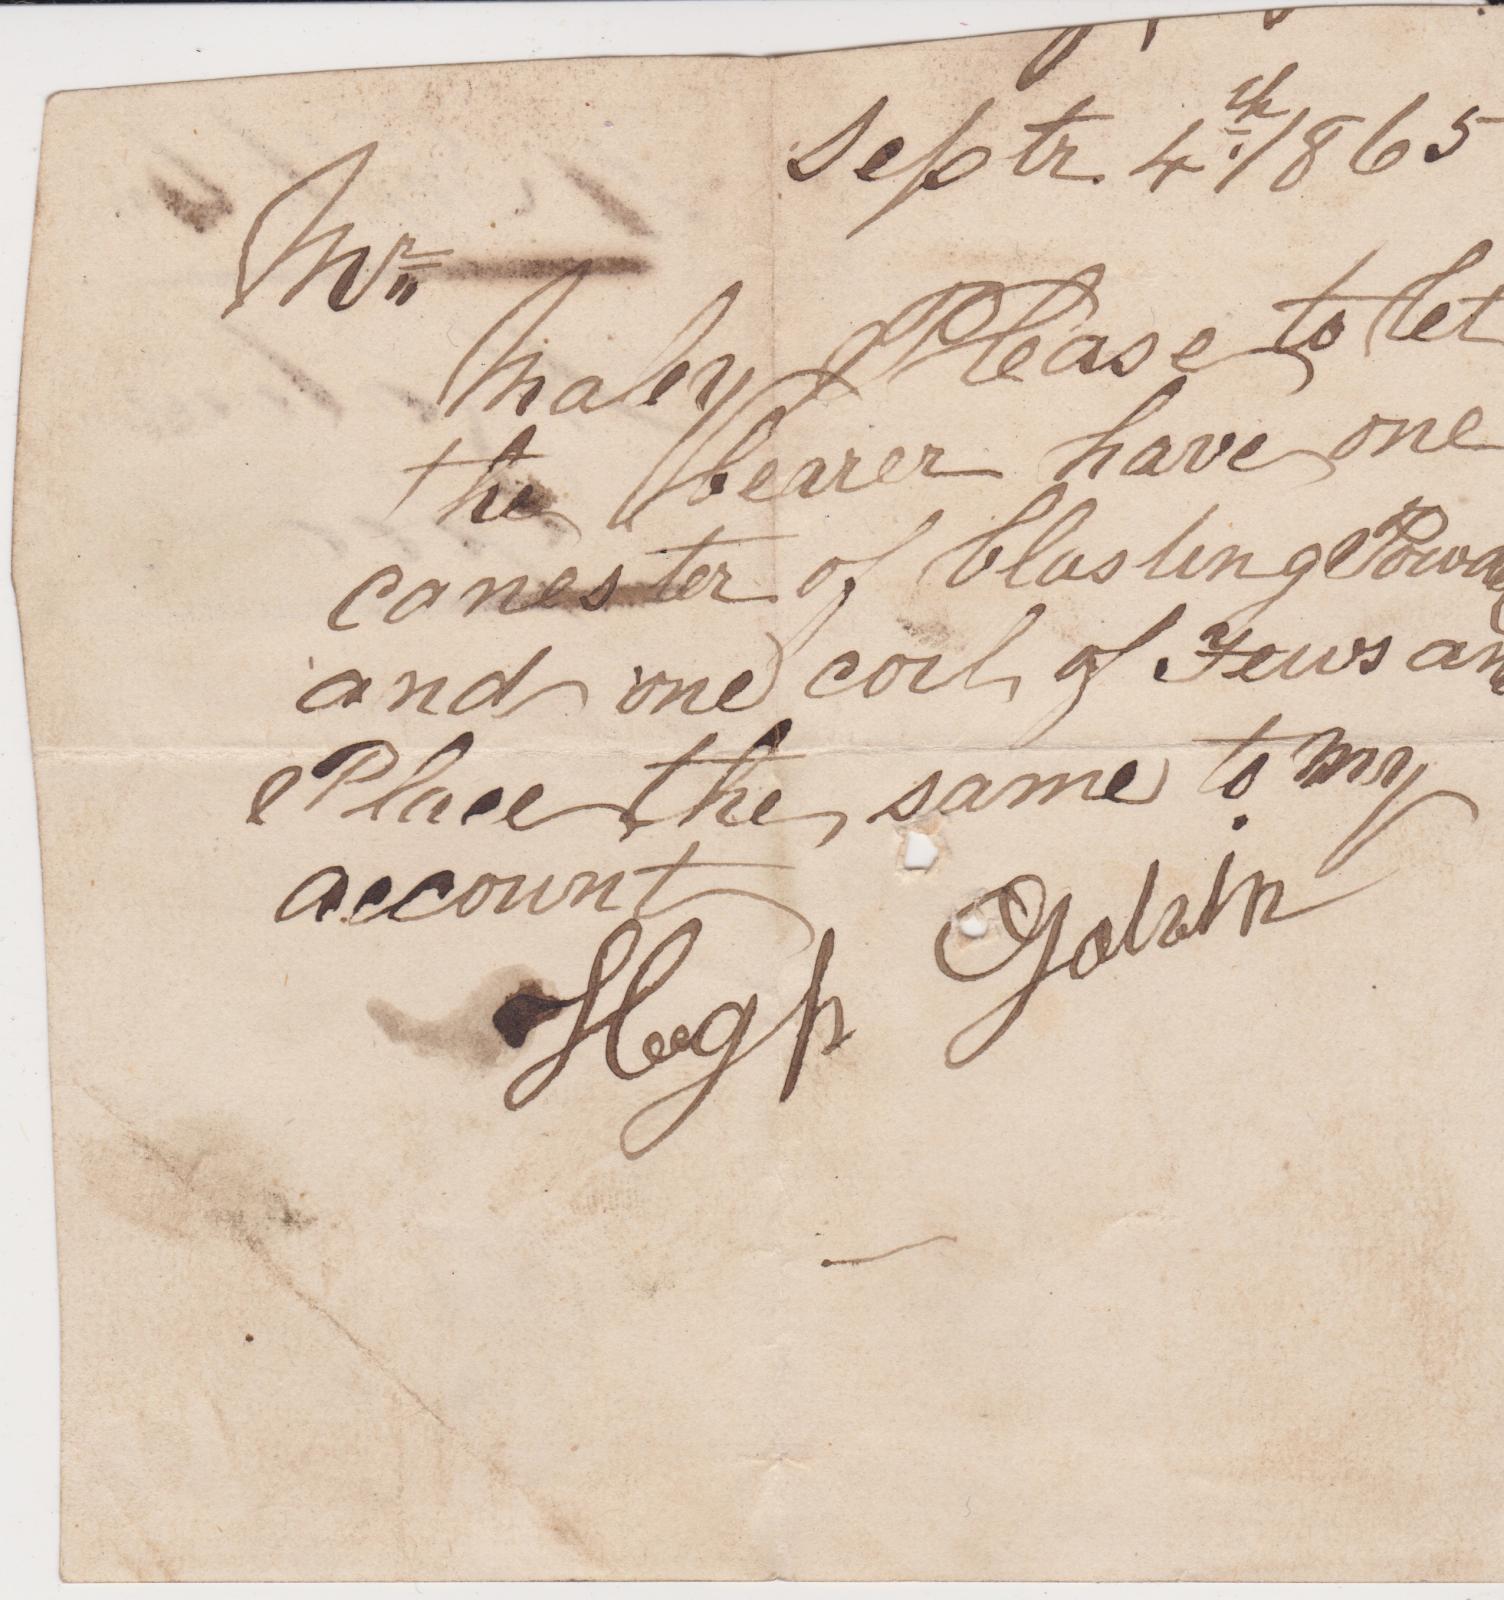 Septr. 4th 1865
Mr
Maley Please to let
the bearer have one
canester of blasting
and one coil of Fews
Place the same to my
account
Hugh Galvin